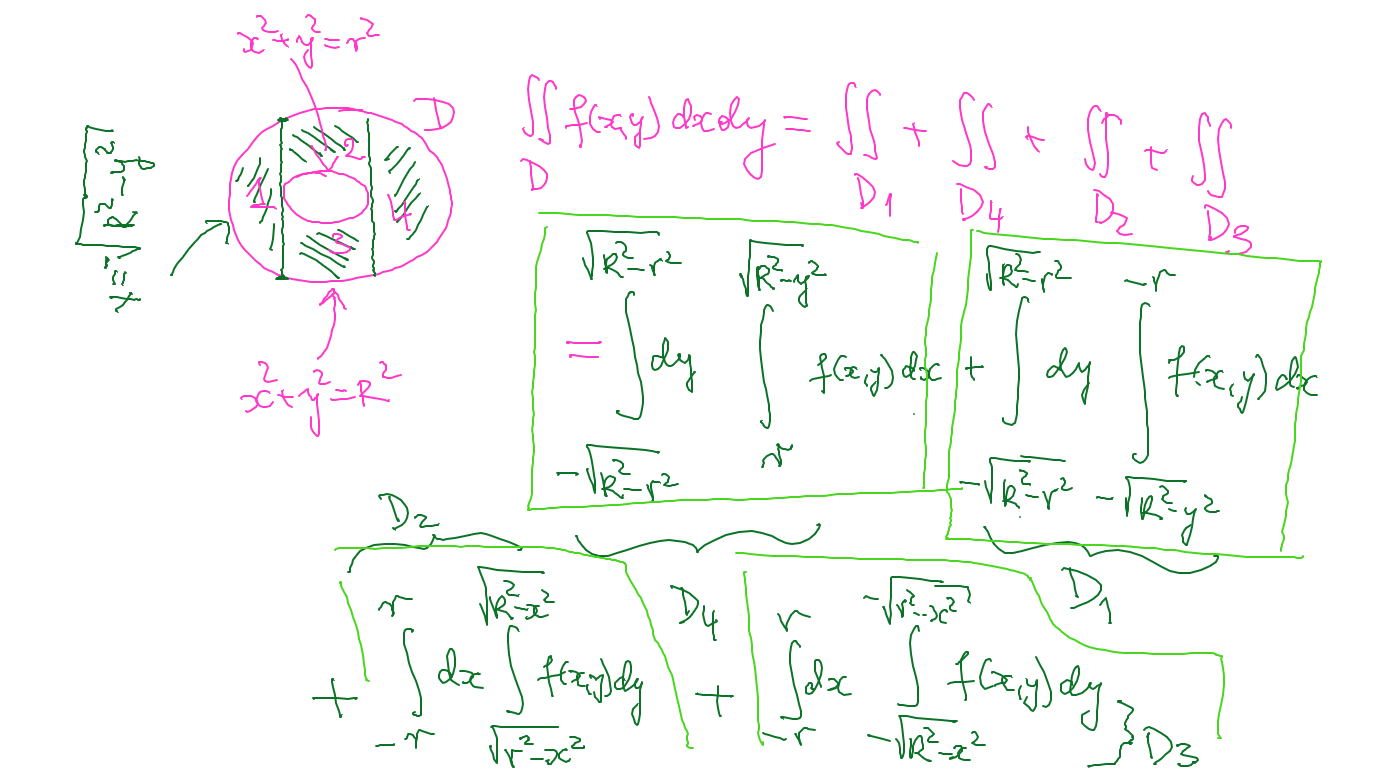 x²+y²=r²
D
1
2
3
4
x=-√(R²-y²)
x²+y²=R²
∬_D f(x,y) dxdy = ∬_D1 + ∬_D4 + ∬_D2 + ∬_D3
= ∫_{-√(R²-r²)}^{√(R²-r²)} dy ∫_{r}^{√(R²-y²)} f(x,y) dx + ∫_{-√(R²-r²)}^{√(R²-r²)} dy ∫_{-√(R²-y²)}^{-r} f(x,y) dx
D2
D4
D1
+ ∫_{-r}^{r} dx ∫_{√(r²-x²)}^{√(R²-x²)} f(x,y) dy + ∫_{-r}^{r} dx ∫_{-√(R²-x²)}^{-√(r²-x²)} f(x,y) dy } D3